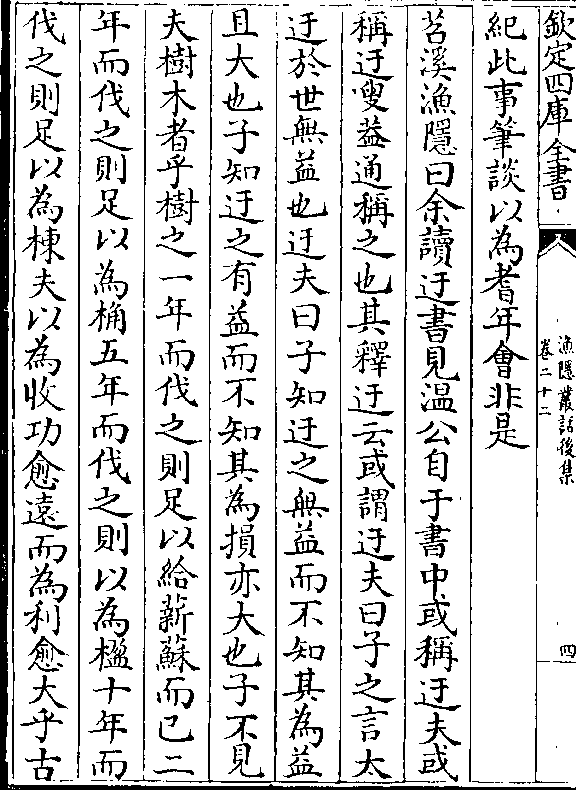 欽定四庫全書
漁隱叢話後集
卷二十二
四
紀此事筆談以為耆年會非是
苕溪漁隱曰余讀迂書見溫公自于書中或稱迂夫或
稱迂叟葢通稱之也其釋迂云或謂迂夫曰子之言太
迂於世無益也迂夫曰子知迂之無益而不知其為益
且大也子知迂之有益而不知其為損亦大也子不見
夫樹木者乎樹之一年而伐之則足以給薪蘇而已二
年而伐之則足以為桷五年而伐之則以為楹十年而
伐之則足以為棟夫以為收功愈遠而為利愈大乎古